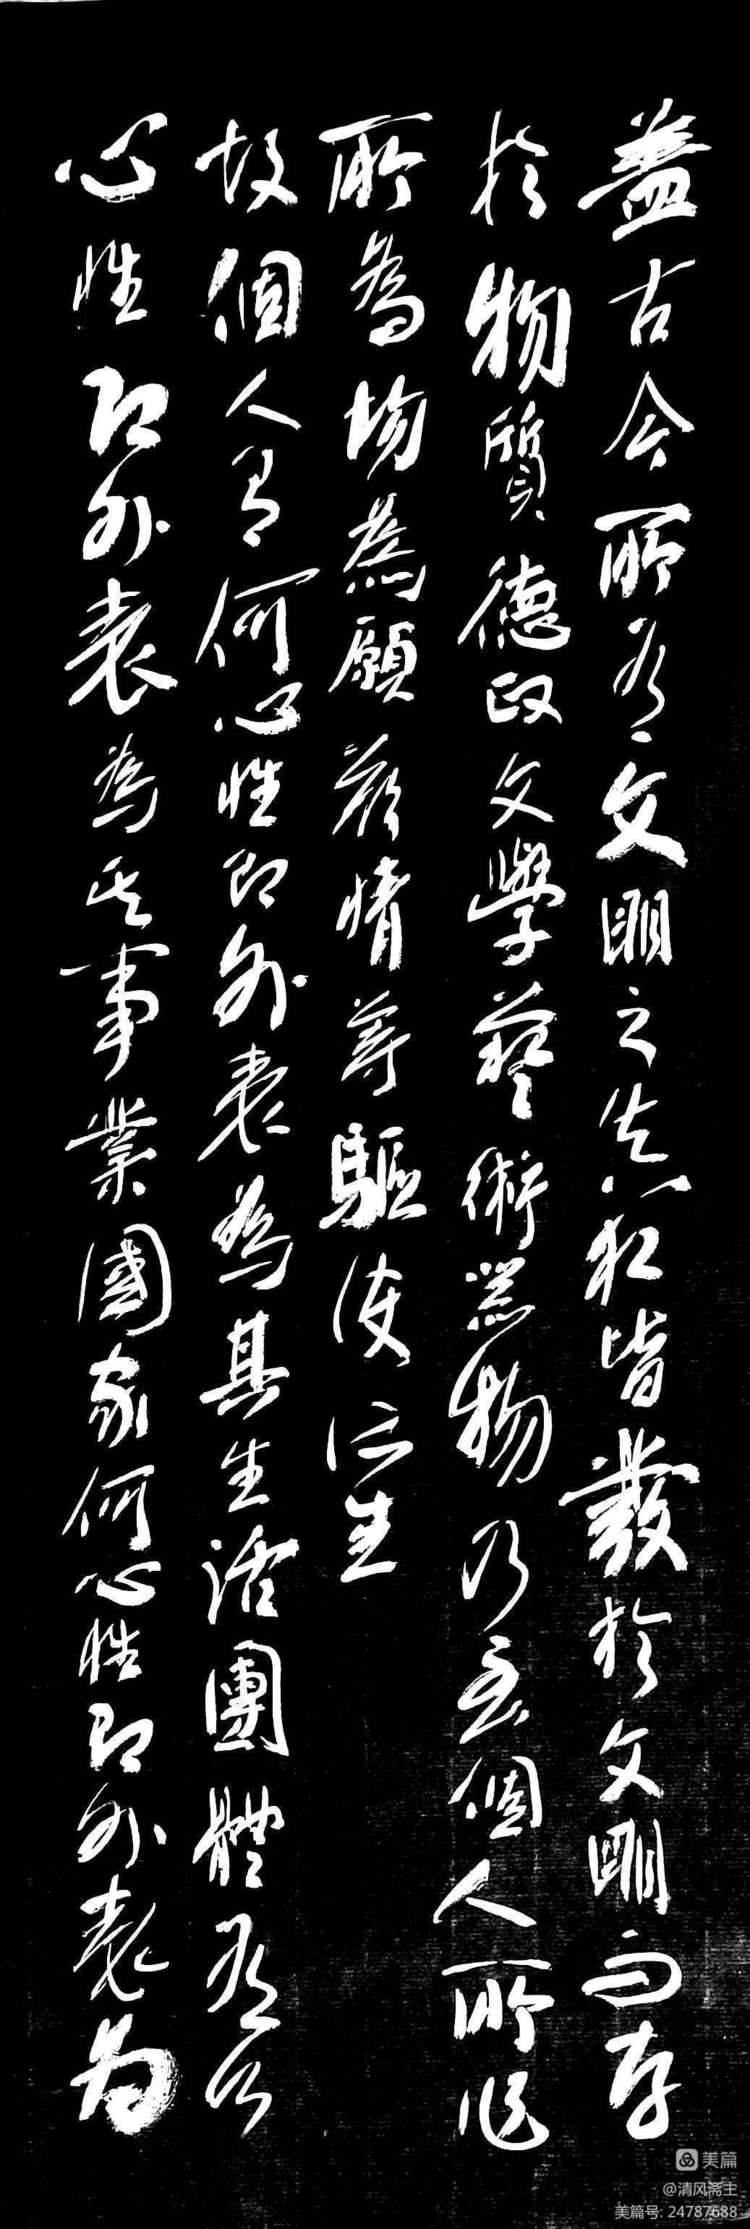 蓋古今所有文明之真相皆發於文明而存
於物質德政文學藝術器物乃至個人所作
所為均為願欲情等驅使所生
故個人有何心性即外表為其生活團體有何
心性即外表為其事業國家何心性即外表為
美篇
@清风斋主
美篇号: 24787688